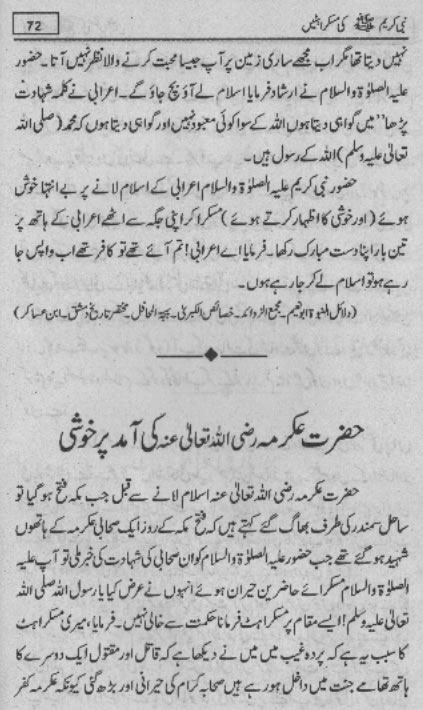 72
نبی کریم ﷺ کی مسکراہٹیں
نہیں دیتا تھا مگر اب مجھے ساری زمین پر آپ جیسا محبت کرنے والا نظر نہیں آتا۔ حضور
علیہ الصلوٰۃ والسلام نے ارشاد فرمایا اسلام لے آؤ بچ جاؤ گے۔ اعرابی نے کلمہ شہادت
پڑھا ”میں گواہی دیتا ہوں اللہ کے سوا کوئی معبود نہیں اور گواہی دیتا ہوں کہ محمد (صلی اللہ
تعالیٰ علیہ وسلم) اللہ کے رسول ہیں۔
حضور نبی کریم علیہ الصلوٰۃ والسلام اعرابی کے اسلام لانے پر بے انتہا خوش
ہوئے (اور خوشی کا اظہار کرتے ہوئے) مسکرا کر اپنی جگہ سے اٹھے اعرابی کے ہاتھ پر
تین بار اپنا دست مبارک رکھا۔ فرمایا اے اعرابی! تم آئے تھے تو کافر تھے اب واپس جا
رہے ہو تو اسلام لے کر جا رہے ہوں۔
(دلائل النبوۃ ابونعیم۔ مجمع الزوائد۔ خصائص الکبریٰ۔ بہجۃ المحافل۔ مختصر تاریخ دمشق۔ ابن عساکر)
حضرت عکرمہ رضی اللہ تعالیٰ عنہ کی آمد پر خوشی
حضرت عکرمہ رضی اللہ تعالیٰ عنہ اسلام لانے سے قبل جب مکہ فتح ہو گیا تو
ساحل سمندر کی طرف بھاگ گئے کہتے ہیں کہ فتح مکہ کے روز ایک صحابی عکرمہ کے ہاتھوں
شہید ہو گئے تھے جب حضور علیہ الصلوٰۃ والسلام کو ان صحابی کی شہادت کی خبر ملی تو آپ علیہ
الصلوٰۃ والسلام مسکرائے حاضرین حیران ہوئے انہوں نے عرض کیا یا رسول اللہ صلی اللہ
تعالیٰ علیہ وسلم! ایسے مقام پر مسکراہٹ فرمانا حکمت سے خالی نہیں۔ فرمایا، میری مسکراہٹ
کا سبب یہ ہے کہ پردہ غیب میں میں نے دیکھا ہے کہ قاتل اور مقتول ایک دوسرے کا
ہاتھ تھامے جنت میں داخل ہو رہے ہیں صحابہ کرام کی حیرانی اور بڑھ گئی کیونکہ عکرمہ کفر